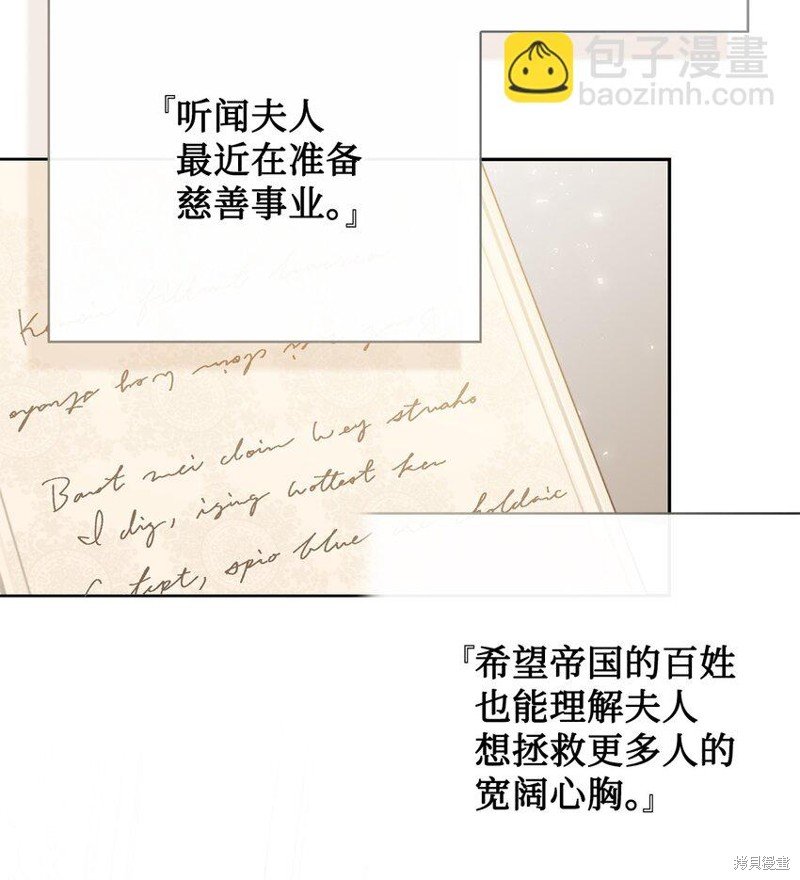 包子漫畫
baozimh.com
『听闻夫人
最近在准备
慈善事业。』
Barot mei cloin wey struaho
I dig, izing wottest ken
spio blue
『希望帝国的百姓
也能理解夫人
想拯救更多人的
宽阔心胸。』
拷貝漫畫